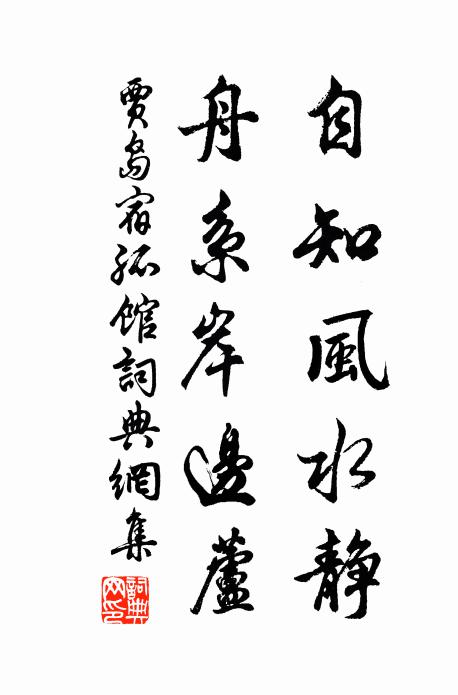 自知風水静
舟系岸邊蘆
賈島宿孤館詞典網集
詞典网印